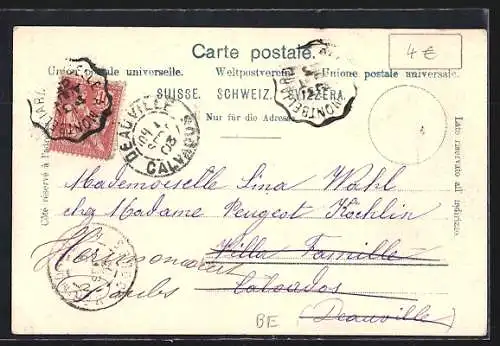 Carte postale.
4 €
Union postale universelle. Weltpostverein. Unione postale universale.
SUISSE. SCHWEIZ. SVIZZERA.
Nur für die Adresse.
Côté réservé à l'adresse.
Lato riservato all indirizzo.
DEAUVILLE
CALVADOS
03
MONTBELIARD
Mademoiselle Lina Wahl
chez Madame Peugeot Kœchlin
Villa Famille
Hérimoncourt
Calvados
Doubs
(Deauville)
BE